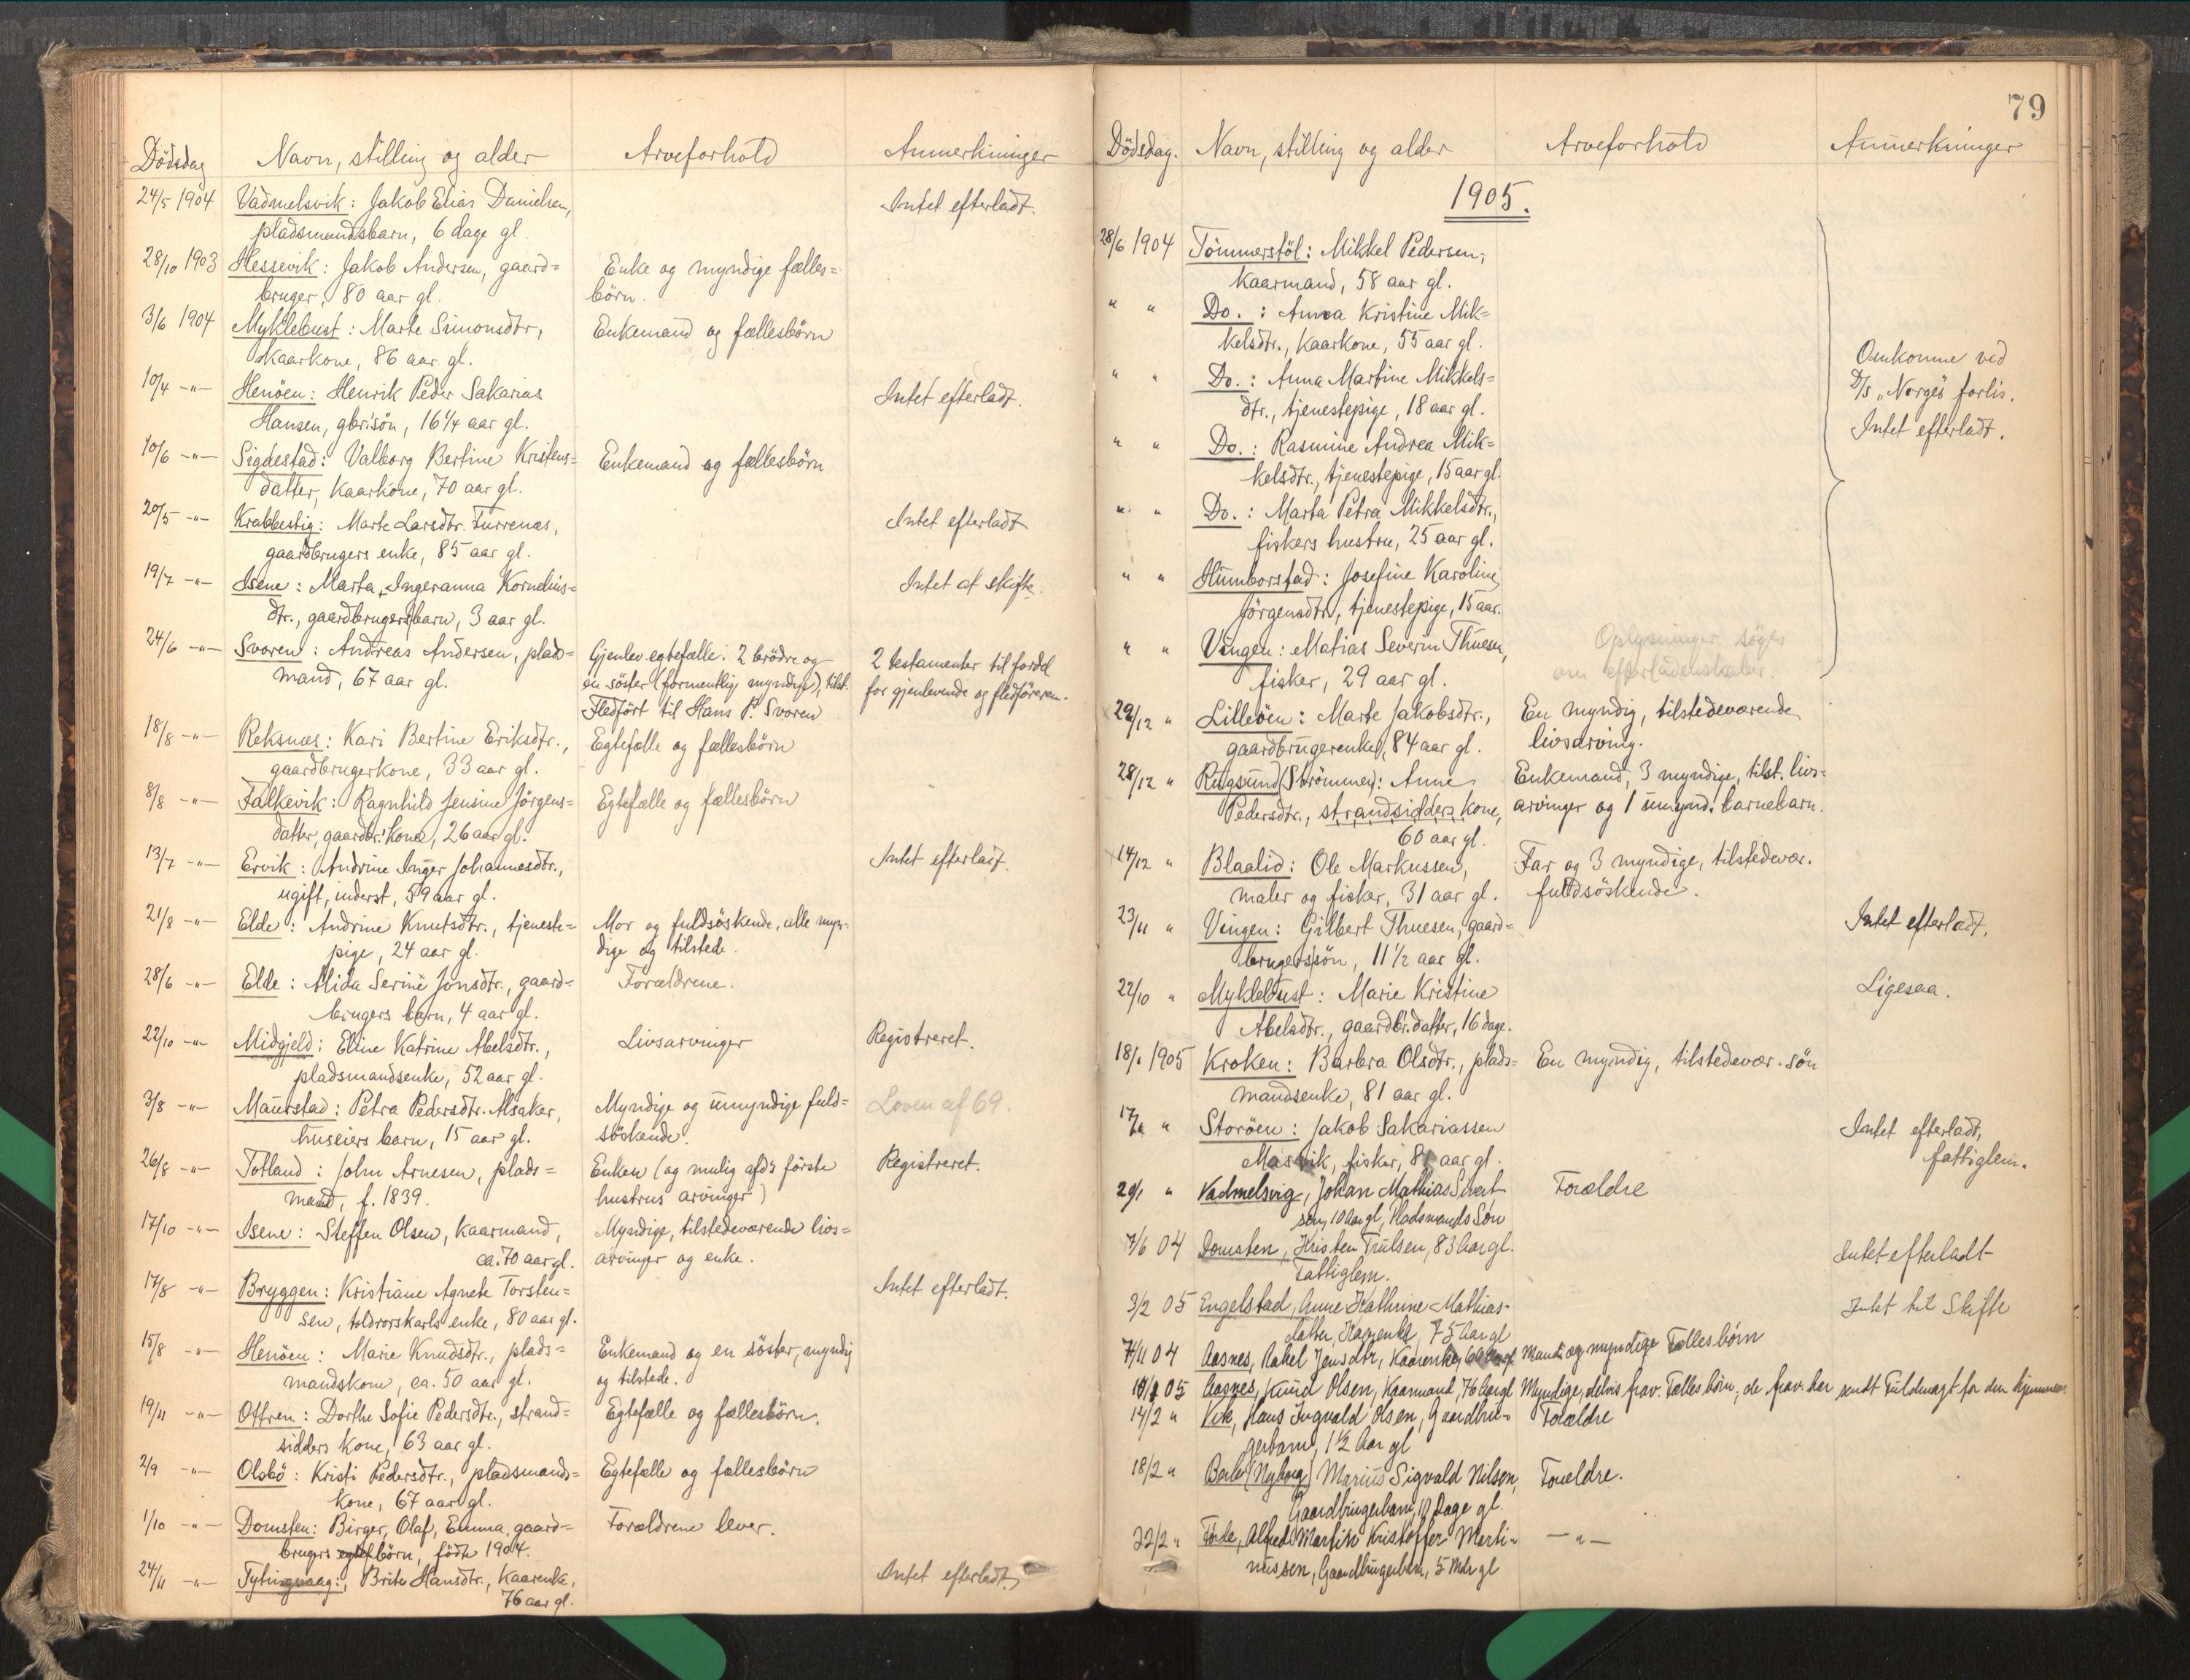 Dödsdag Navn, stilling og alder Arveforhold Anmerkninger
24/5 1904 Vadmelsvik: Jakob Elias Danielsen, Intet efterladt.
pladsmandsbarn, 6 dage gl.
28/10 1903 Hessevik: Jakob Andersen, gaard= Enke og myndige fælles=
bruger, 80 aar gl. börn.
3/6 1904 Myklebust: Marte Simonsdtr, Enkemand og fællesbörn
kaarkone, 86 aar gl.
10/4 -"- Henöen: Henrik Peder Sakarias Intet efterladt.
Hansen, gbr.sön, 16 1/4 aar gl.
10/6 -"- Sigdestad: Valborg Bertine Kristens= Enkemand og fællesbörn
datter, kaarkone, 70 aar gl.
20/5 -"- Krabbestig: Marte Larsdtr. Furrenæs, Intet efterladt
gaardbrugers enke, 85 aar gl.
19/7 -"- Isene: Marta Ingeranna Kornelius= Intet at skifte.
dtr., gaardbrugersbarn, 3 aar gl.
24/6 -"- Svoren: Andreas Andersen, plads= Gjenlev. egtefælle. 2 brödre og 2 testamenter til fordel
mand, 67 aar gl. en söster (formentlig myndige), tilst. for gjenlevende og fledföreren.
Fledfört til Hans P. Svoren
18/8 -"- Reksnæs: Kari Bertine Eriksdtr., Egtefælle og fællesbörn
gaardbrugerkone, 33 aar gl.
8/8 -"- Falkevik: Ragnhild Jensine Jörgens= Egtefælle og fællesbörn
datter, gaardbr. kone, 26 aar gl.
13/7 -"- Ervik: Andrine Inger Johannesdtr., Intet efterladt.
ugift, inderst, 59 aar gl.
21/8 -"- Elde: Andrine Knutsdtr., tjeneste= Mor og fuldsöskende, alle myn=
pige, 24 aar gl. dige og tilstede.
28/6 -"- Elde: Alida Serine Jonsdtr., gaard= Forældrene.
brugers barn, 4 aar gl.
22/10 -"- Midgjeld: Eline Katrine Abelsdtr., Livsarvinger Registreret.
pladsmandsenke, 52 aar gl.
3/8 -"- Maurstad: Petra Pedersdtr. Alsaker, Myndige og umyndige fuld= Loven af 69.
huseiers barn, 15 aar gl. söskende.
26/8 -"- Totland: John Arnesen, plads= Enken (og mulig afd's förste Registreret.
mand, f. 1839. hustrus arvinger)
17/10 -"- Isene: Steffen Olsen, kaarmand, Myndige, tilstedeværende livs=
ca. 70 aar gl. arvinger og enke.
17/8 -"- Bryggen: Kristiane Agnete Torsten= Intet efterladt.
sen, toldrorskarls enke, 80 aar gl.
15/8 -"- Henöen: Marie Knudsdtr., plads= Enkemand og en söster, myndig
mandskone, ca. 50 aar gl. og tilstede.
19/11 -"- Ottren: Dorthe Sofie Pedersdtr., strand= Egtefælle og fællesbörn.
sidders kone, 63 aar gl.
2/9 -"- Olsbö: Kristi Pedersdtr., pladsmands= Egtefælle og fællesbörn
kone, 67 aar gl.
1/10 -"- Domsten: Birger, Olaf, Emma, gaard= Forældrene lever.
brugers börn, födte 1904.
24/11 -"- Tytingvaag: Brite Hansdtr., kaarenke, Intet efterladt.
76 aar gl.
79
Dödsdag. Navn, stilling og alder Arveforhold Anmerkninger
1905.
28/6 1904 Tömmerstöl: Mikkel Pedersen,
kaarmand, 58 aar gl.
" " Do.: Anna Kristine Mik=
kelsdtr., kaarkone, 55 aar gl.
" " Do.: Anna Martine Mikkels=
dtr., tjenestepige, 18 aar gl.
" " Do.: Rasmine Andrea Mik=
kelsdtr., tjenestepige, 15 aar gl.
Omkomne ved
D/S "Norge"s forlis.
Intet efterladt.
" " Do.: Marta Petra Mikkelsdtr.,
fiskers hustru, 25 aar gl.
" " Humborstad: Josefine Karoline
Jörgensdtr., tjenestepige, 15 aar.
" " Vingen: Matias Severin Thuesen, Oplysninger söges
fisker, 29 aar gl. om efterladenskaber.
29/12 " Lilleöen: Marte Jakobsdtr., En myndig, tilstedeværende
gaardbrugerenke, 84 aar gl. livsarving.
28/12 " Rugsund (Strömmen): Anne Enkemand, 3 myndige, tilst. livs=
Pedersdtr., strandsidders kone, arvinger og 1 umynd. barnebarn.
60 aar gl.
14/12 " Blaalid: Ole Markussen, Far og 3 myndige, tilstedevær.
maler og fisker, 31 aar gl. fuldsöskende.
23/11 " Vingen: Gilbert Thuesen, gaard= Intet efterladt.
brugersön, 11 1/2 aar gl.
22/10 " Myklebust: Marie Kristine Ligesaa.
Abelsdtr., gaardbr. datter, 16 dage.
18/1 1905 Kroken: Barbra Olsdtr., plads= En myndig, tilstedevær. sön
mandsenke, 81 aar gl.
" Storöen: Jakob Sakariassen Intet efterladt,
fisker, aar gl. fattiglem.
29/1 " Vadmelsvig, Johan Mathias Sivert Forældre
sen, 10 Aar gl, Pladsmands Søn
7/6 04 Domsten, Kristen Trulsen, 83 Aar gl. Intet efterladt
Fattiglem.
3/2 05 Engelstad, Anne Kathrine Mathias- Intet til Skifte
datter, Kaarenke, 75 Aar gl
7/11 04 Aasnes, Rakel Jensdtr, Mand og myndige Fællesbørn
05 Aasnes, Knud Olsen, Kaarmand, 76 Aar gl Myndige, delvis frav. Fællesbørn, de frav. har sendt Fuldmagt for den hjemme
14/2 " Vik, Hans Ingvald Olsen, Gaardbru- Forældre
gerbarn, 1 1/2 Aar gl
18/2 " Berle (Nyborg) Marius Sigvald Nilsen, Forældre.
Gaardbrugerbarn, 10 Dage gl.
22/2 " Førde, Alfred Martin Kristoffer Marti- -"-
nussen, Gaardbrugerbarn, 5 Mdr gl